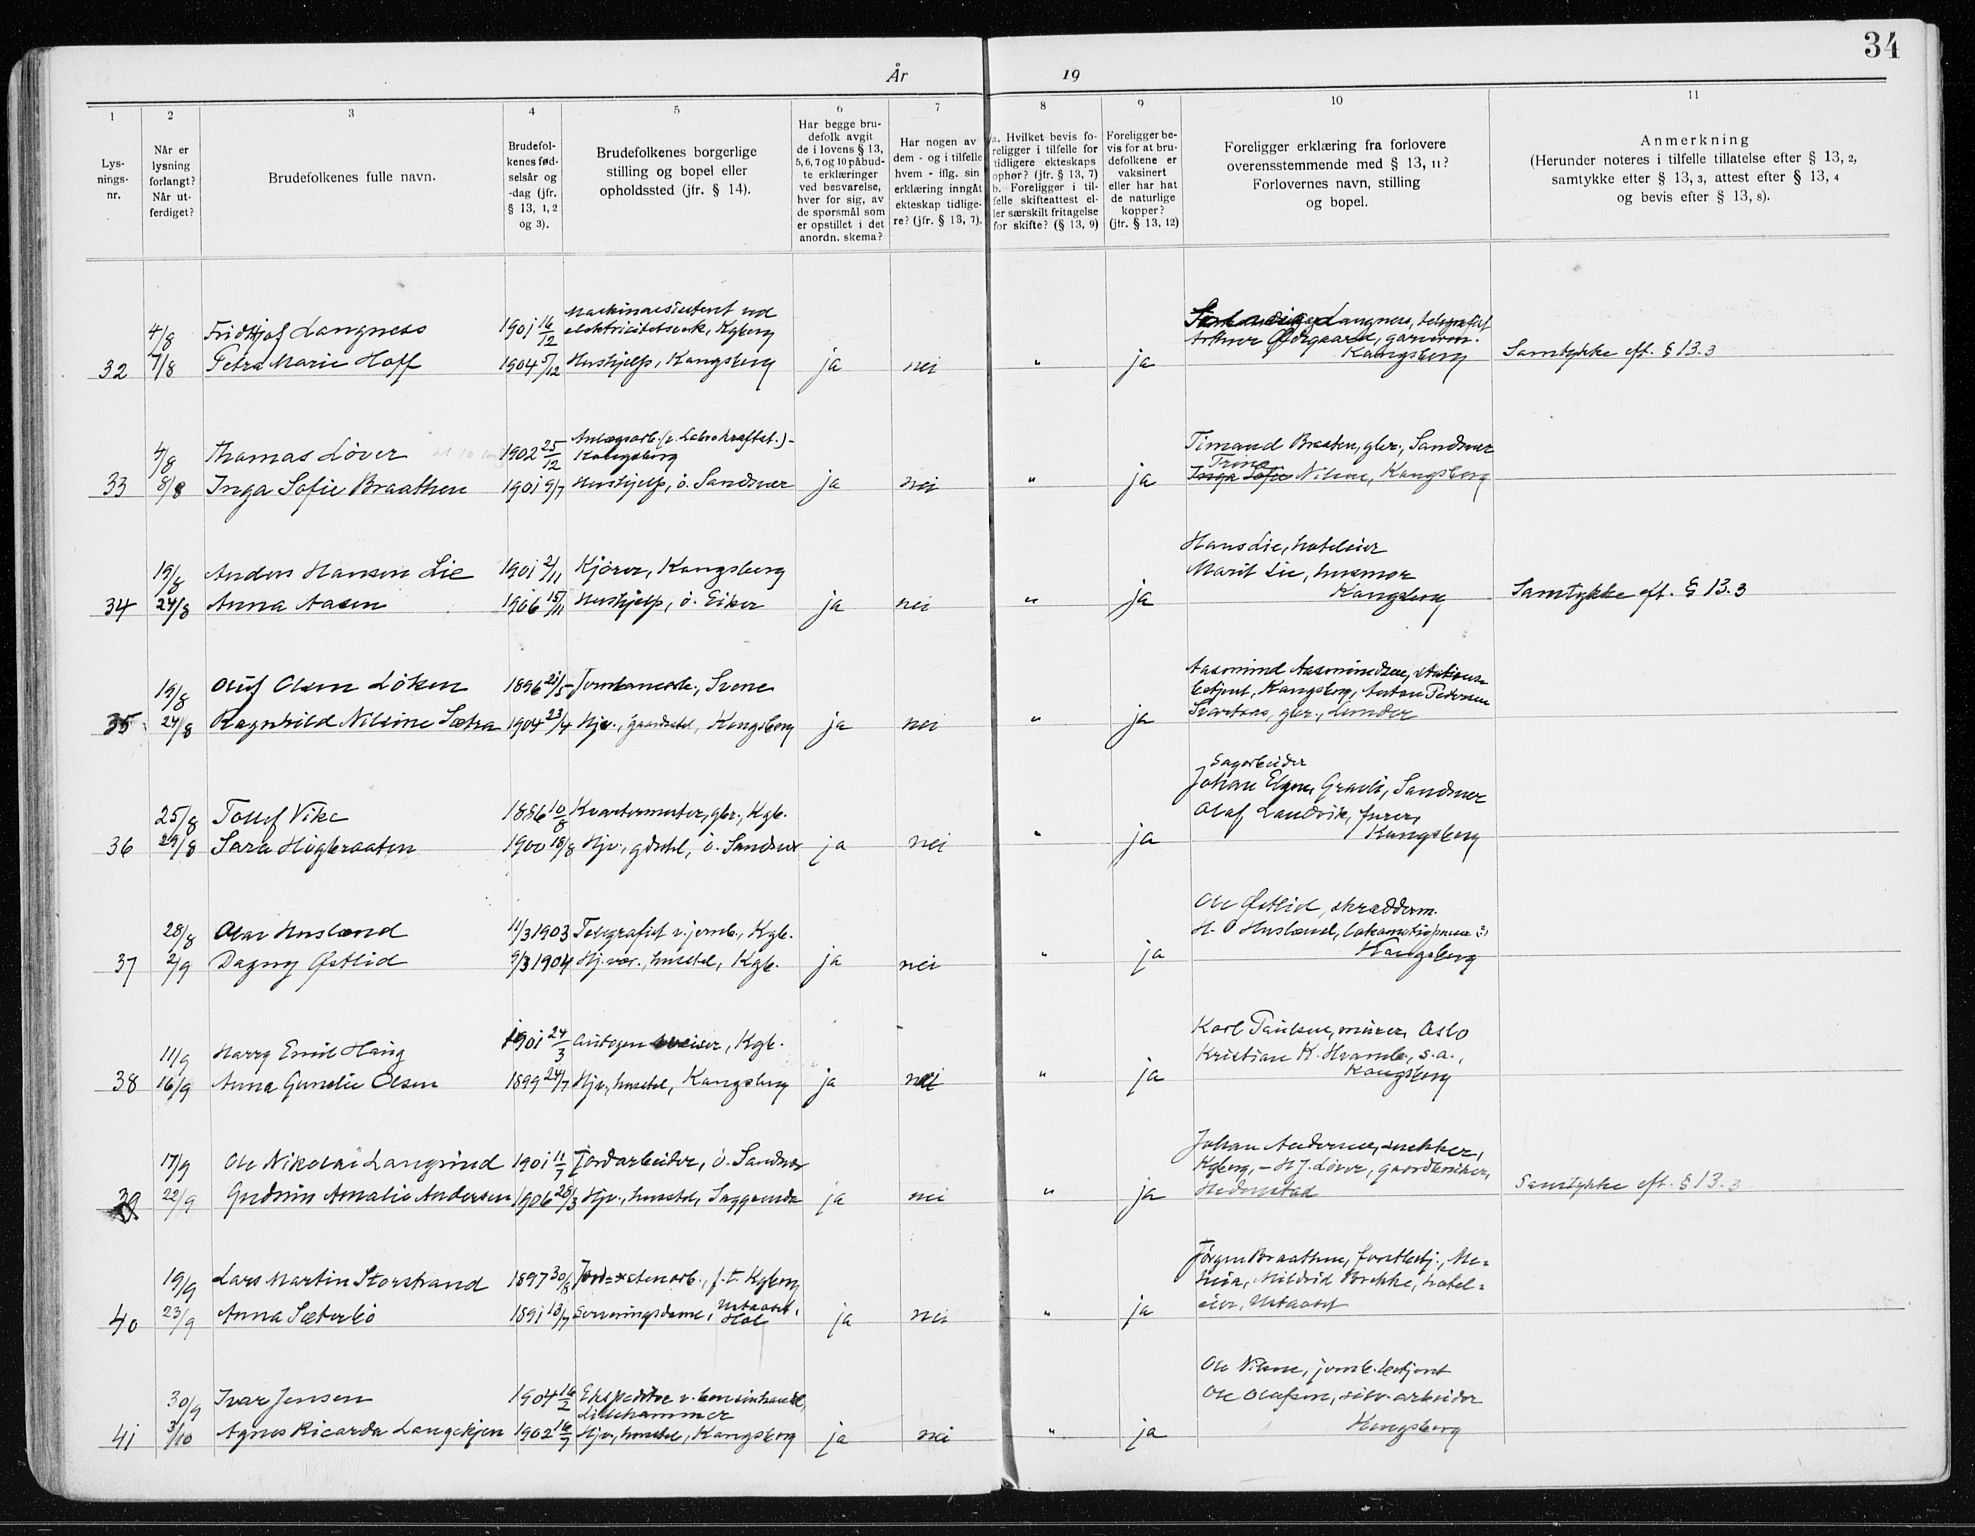 34
År 19
1 2 3 4 5 6 7 8 9 10 11
Lys-
nings-
nr.
Når er
lysning
forlangt?
Når ut-
ferdiget?
Brudefolkenes fulle navn.
Brudefol-
kenes fød-
selsår og
-dag (jfr.
§ 13, 1, 2
og 3).
Brudefolkenes borgerlige
stilling og bopel eller
opholdssted (jfr. § 14).
Har begge bru-
defolk avgit
de i lovens § 13,
5, 6, 7 og 10 påbud-
te erklæringer
ved besvarelse,
hver for sig, av
de spørsmål som
er opstillet i det
anordn. skema?
Har nogen av
dem - og i tilfelle
hvem - iflg. sin
erklæring inngått
ekteskap tidlige-
re? (jfr. § 13, 7).
a. Hvilket bevis fo-
religger i tilfelle for
tidligere ekteskaps
ophør? (jfr. § 13, 7)
b. Foreligger i til-
felle skifteattest el-
ler særskilt fritagelse
for skifte? (§ 13, 9)
Foreligger be-
vis for at bru-
defolkene er
vaksinert
eller har hat
de naturlige
kopper?
(jfr. § 13, 12)
Foreligger erklæring fra forlovere
overensstemmende med § 13, 11?
Forlovernes navn, stilling
og bopel.
Anmerkning
(Herunder noteres i tilfelle tillatelse efter § 13, 2,
samtykke efter § 13, 3, attest efter § 13, 4
og bevis efter § 13, 8).
4/8 Fridtjof Langness 1901 16/12 Maskinassistent ved
elektricitetsverk, Kgberg
32 7/8 Petra Marie Hoff 1904 5/12 Hushjelp, Kongsberg ja nei " ja
Langness, telegrafist
Ødegaard,
Kongsberg Samtykke eft. § 13.3
4/8 Thomas Løver 1902 25/12 Anlægsarb.
Kongsberg
33 8/8 Inga Sofie Braathen 1901 9/7 Hushjelp, ö. Sandsvær ja nei " ja
Timand Braaten, gbr., Sandsvær
Trine
Inga Sofie Nilsen, Kongsberg
19/8 Anders Hansen Lie 1901 2/11 Kjører, Kongsberg
34 24/8 Anna Aasen 1906 15/11 Hushjelp, ö. Eiker ja nei " ja
Hans Lie, hoteleier
Marit Lie, husmor
Kongsberg Samtykke eft. § 13.3
19/8 Oluf Olsen Løken 1896 23/5 Jernbanearb., Svene
35 24/8 Ragnhild Nilsine Sætra 1904 23/4 Hjv., gaardstel, Kongsberg ja nei " ja
Aasmund Aasmundsen, stations-
betjent, Kongsberg, Anton Pedersen
Svartaas, gbr., Lunder
25/8 Tollef Vike 1886 10/8 Kvartermester, gbr., Kgb.
36 29/8 Sara Høgbraaten 1900 18/8 Hjv., gdstel, ö. Sandsvær ja nei " ja
Sagarbeider
Johan Elgen, Gravli, Sandsvær
Olaf Landvik, furer,
Kongsberg
28/8 Olav Husland 11/3 1903 Telegrafist v. jernb., Kgb.
37 2/9 Dagny Østlid 9/3 1904 Hj.vær., husstel, Kgb. ja nei " ja
Ole Østlid, skrædderm.
H. O Husland,
Kongsberg
11/9 Harry Emil Haug 1901 24/3 Autogensveiser, Kgb.
38 16/9 Anna Gunelie Olsen 1899 24/7 Hjv., husstel, Kongsberg ja nei " ja
Karl Paulsen, murer, Oslo
Kristian K. Hvamb, s.a.,
Kongsberg
17/9 Ole Nikolai Langrind 1901 11/7 Jordarbeider, ö. Sandsvær
39 22/9 Gudrun Amalie Andersen 1906 25/3 Hjv., husstel, Saggrenda ja nei " ja
Johan Andersen, snekker,
Kgberg, - H J. Løver, gaardbruker,
Hedenstad Samtykke eft. § 13.3
19/9 Lars Martin Storstrand 1897 30/8 Jord- x stenarb., f. t. Kgberg
40 23/9 Anna Sæterbö 1891 13/7 Serveringsdame, Ustaoset,
Hol ja nei " ja
Jørgen Braathen, forstbetj., Me-
heia, Mildrid Brekke, hotel-
eier, Ustaoset
30/9 Ivar Jensen 1904 16/2 Ekspeditør v.
Lillehammer
41 3/10 Agnes Ricarda Langekjen 1902 16/7 Hjv., husstel, Kongsberg ja nei " ja
Ole Nilsen, jernb.betjent
Ole Olafsen, sølv-arbeider
Kongsberg